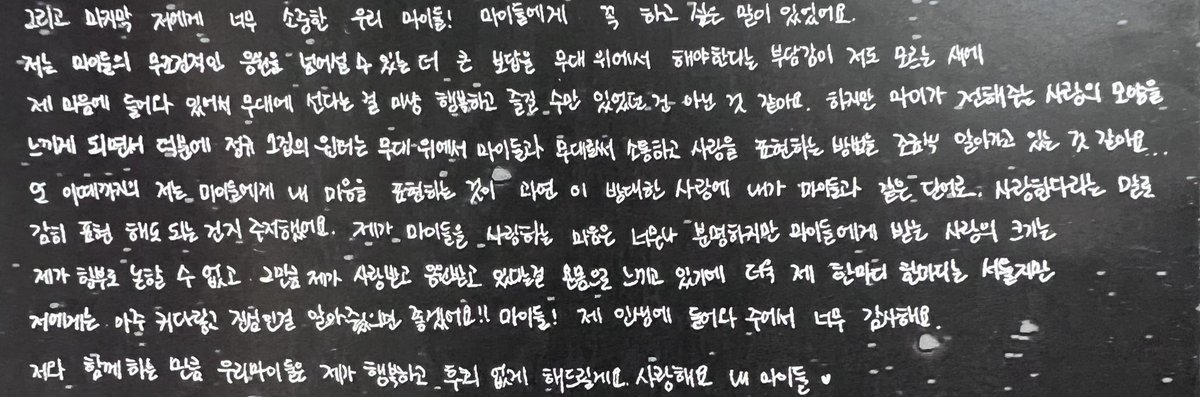 그리고 마지막 저에게 너무 소중한 우리 마이들! 마이들에게 꼭 하고 싶은 말이 있었어요.
저는 마이들의 무조건적인 응원을 넘어설 수 있는 더 큰 보답을 무대 위에서 해야한다는 부담감이 저도 모르는 새에
제 마음에 들어와 있어서 무대에 선다는 걸 마냥 행복하고 즐길 수만 있었던 건 아닌 것 같아요. 하지만 마이가 전해주는 사랑의 모양을
느끼게 되면서 덕분에 정규 1집의 윈터는 무대 위에서 마이들과 무대로써 소통하고 사랑을 표현하는 방법을 조금씩 알아가고 있는 것 같아요...
또 이때까지의 저는 마이들에게 내 마음을 표현하는 것이 과연 이 방대한 사랑에 내가 마이들과 같은 단어로 사랑한다라는 말로
감히 표현 해도 되는 건지 주저했어요. 제가 마이들을 사랑하는 마음은 너무나 분명하지만 마이들에게 받는 사랑의 크기는
제가 함부로 논할 수 없고 그만큼 제가 사랑받고 응원받고 있다는걸 온몸으로 느끼고 있기에 더욱 제 한마디 한마디는 서툴지만
저에게는 아주 커다랗고 진심인걸 알아줬으면 좋겠어요!! 마이들! 제 인생에 들어와 주어서 너무 감사해요.
저와 함께하는 만큼 우리마이들은 제가 행복하고 후회 없게 해드릴게요. 사랑해요 내 마이들 ♥